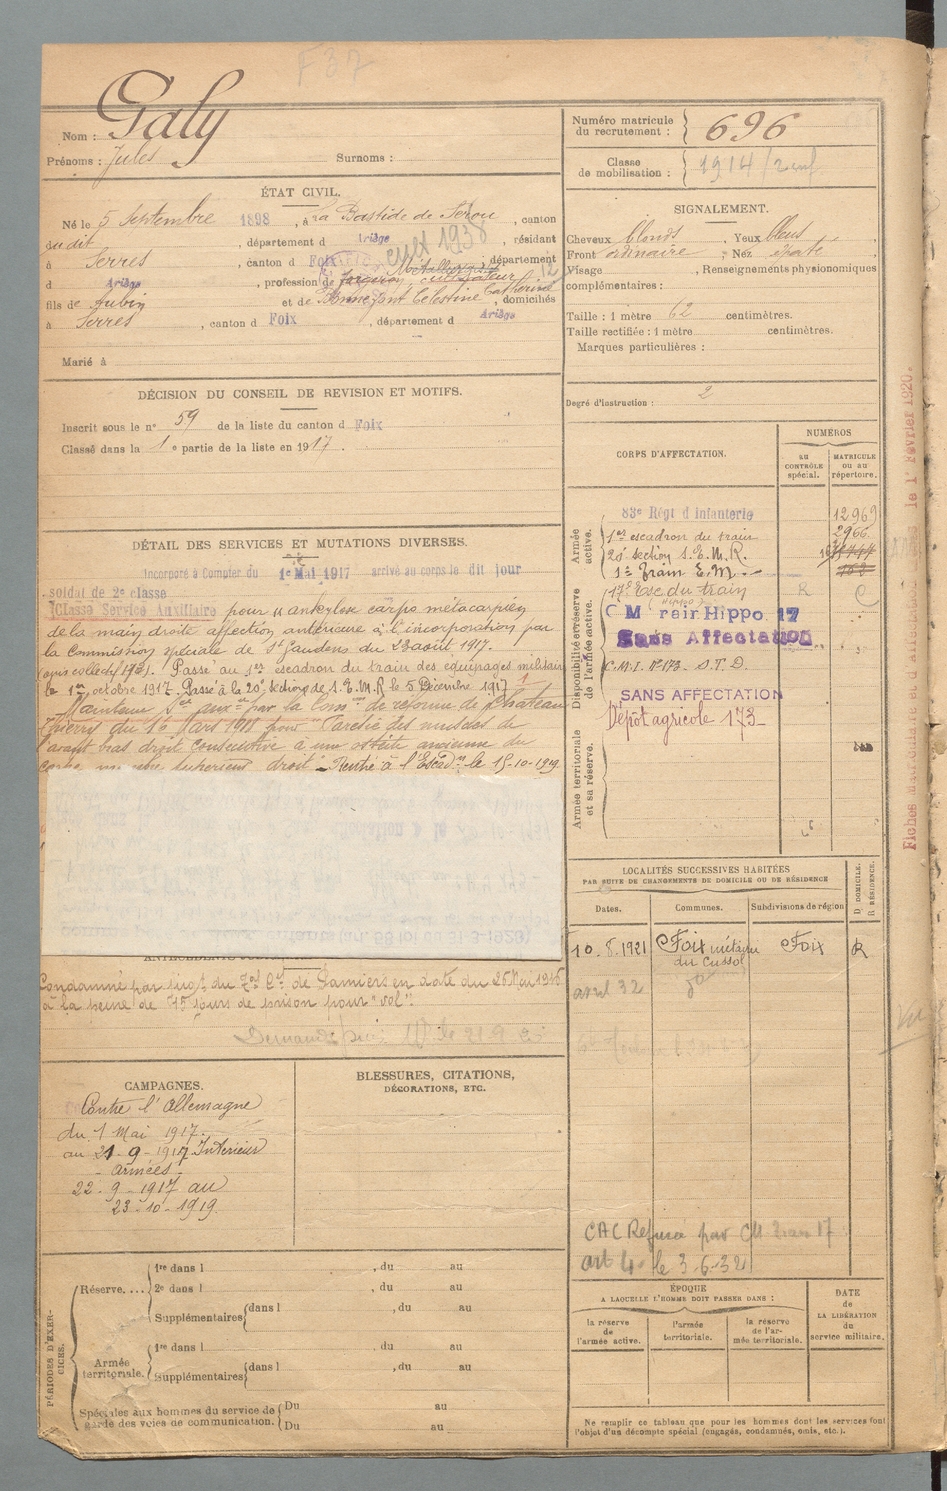 F 37
Nom : Galy
Prénoms : Jules Surnoms :
ÉTAT CIVIL.
Né le 5 Septembre 1898, à La Bastide de Serou, canton
dudit, département d Ariège, résidant
à Serres, canton d Foix, département
cult 1938
d Ariège, profession de cultivateur 12
fils de Aubin et de Bonnezont Célestine Catherine, domiciliés
à Serres, canton d Foix, département d Ariège
Marié à
DÉCISION DU CONSEIL DE REVISION ET MOTIFS.
Inscrit sous le n° 59 de la liste du canton d Foix
Classé dans la 1e partie de la liste en 1917.
DÉTAIL DES SERVICES ET MUTATIONS DIVERSES.
Incorporé à Compter du 1e Mai 1917 arrivé au corps le dit jour
soldat de 2e classe
Classé Service Auxiliaire pour ankylose carpo métacarpien
de la main droite affection antérieure à l'incorporation par
la Commission spéciale de St Gaudens du 23 août 1917.
Passé au 1er escadron du train des équipages militaires
le 1er octobre 1917. Passé à la 20e section de S.E.M.R le 5 Décembre 1917
Maintenu Sce auxre par la Comon de réforme de Château
Thierry du 16 Mars 1918 pour "Parésie des muscles de
l'avant bras droit consécutive à une ostéite ancienne du
droit. Rentré à l'Escadon le 15-10-1919
Condamné par jugt du de Pamiers en date du 26 Mai 1916
à la peine de 15 jours de prison pour "vol".
CAMPAGNES.
Contre l'Allemagne
du 1 Mai 1917.
au 21-9-1917 Intérieur
- Armées -
22-9-1917 au
23-10-1919.
BLESSURES, CITATIONS,
DÉCORATIONS, ETC.
PÉRIODES D'EXERCICES.
Réserve....
1re dans l , du au
2e dans l , du au
Supplémentaires dans l , du au
Armée territoriale.
1re dans l , du au
Supplémentaires dans l , du au
Spéciales aux hommes du service de
garde des voies de communication.
Du au
Du au
Numéro matricule
du recrutement : 696
Classe
de mobilisation : 1914
SIGNALEMENT.
Cheveux blonds, Yeux bleus,
Front ordinaire; Nez épaté
Visage , Renseignements physionomiques
complémentaires :
Taille : 1 mètre 62 centimètres.
Taille rectifiée : 1 mètre centimètres.
Marques particulières :
Degré d'instruction : 2
CORPS D'AFFECTATION.
NUMÉROS
au
CONTRÔLE
spécial.
MATRICULE
ou au
répertoire.
Armée
active.
83e Régt d'Infanterie 12969
1er escadron du train 2966
20e section S.E.M.R.
1er Train E.M.
Disponibilité et réserve
de l'armée active.
17e Esc du train R C
C M rair Hippo 17
Sans Affectation
C.M.I. N°173. S.T.D.
SANS AFFECTATION
Dépôt agricole 173
Armée territoriale
et sa réserve.
Fiches
le 1er Février 1920.
LOCALITÉS SUCCESSIVES HABITÉES
PAR SUITE DE CHANGEMENTS DE DOMICILE OU DE RÉSIDENCE
Dates.
Communes.
Subdivisions de région
D DOMICILE.
R RÉSIDENCE.
10.8.1921 Foix métairie Foix R
du Cussol
avril 32 do
CAC Refusée par CM train 17
art 4 le 3-6-32
ÉPOQUE
A LAQUELLE L'HOMME DOIT PASSER DANS :
la réserve
de
l'armée active.
l'armée
territoriale.
la réserve
de l'armée territoriale.
DATE
de
LA LIBÉRATION
du
service militaire.
Ne remplir ce tableau que pour les hommes dont les services font
l'objet d'un décompte spécial (engagés, condamnés, omis, etc.).